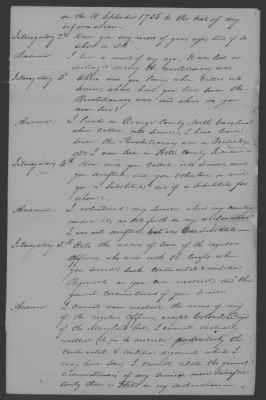 on the 10 September 1756 to the best of my
information.
Interrogatory 2d Have you any record of your age, and if so
where is it?
Answer I have no record of my age. It was lost or
destroyed during the Revolutionary war.
Interrogatory 3d Where were you living when called into
service, where have you lived since the
Revolutionary war and where do you
now live?
Answer I lived in Orange County North Carolina
when called into service, I have lived
since the Revolutionary war in Kentucky,
and I now live in County Indiana
Interrogatory 4th How were you called into service, were
you drafted, did you volunteer or were
you a substitute, and if a substitute for
whom?
Answer I volunteered my services when my country
needed it, as set forth in my declaration
I was not drafted, nor was I a substitute
Interrogatory 5th State the names of some of the regular
officers who were with the troops when
you served; such continental & militia
Regiments as you can recollect, and the
general circumstances of your service.
Answer I cannot now recollect the names of any
of the regular officers, except Colonel
of the Maryland line. I cannot distinctly
recollect (so as to describe) particularly the
continental & militia regiments which I
may have seen, I cannot relate the general
circumstances of my services more satisfac
torily than is stated in my declaration